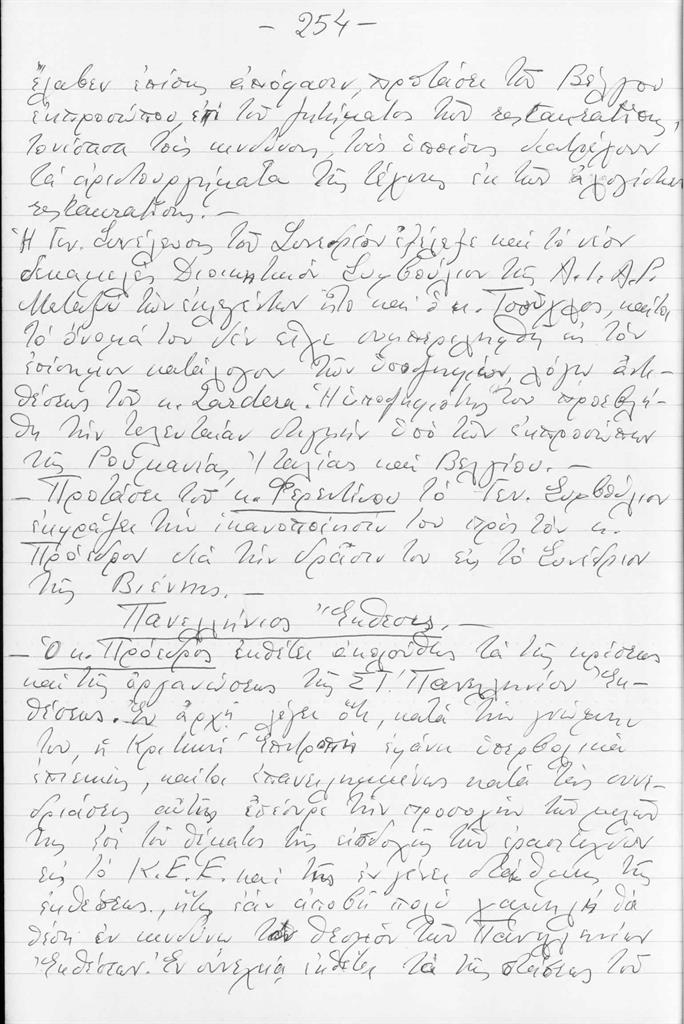 - 254 -
ἔλαβεν ἐπίσης ἀπόφασιν, προτάσει τοῦ Βέλγου
ἐκπροσώπου, ἐπὶ τοῦ ζητήματος τῶν ρεσταυρατίσης,
τονίσασα τοὺς κινδύνους, τοὺς ὁποίους διατρέχουν
τὰ ἀριστουργήματα τῆς τέχνης ἐκ τῶν
ρεσταυρατίσης. -
Ἡ Γεν. Συνέλευσις τοῦ Συνεδρίου ἐξέλεξε καὶ τὸ νέον
δεκαμελὲς Διοικητικὸν Συμβούλιον τῆς A.I.A.P.
Μεταξὺ τῶν ἐκλεγέντων ἦτο καὶ ὁ κ. Τσούχλος, καίτοι
τὸ ὄνομά του δὲν εἶχε συμπεριληφθῆ εἰς τὸν
ἐπίσημον κατάλογον τῶν ὑποψηφίων, λόγῳ ἀντι-
θέσεως τοῦ κ. Lardera. Ἡ ὑποψηφιότης του προεβλή-
θη τὴν τελευταίαν στιγμὴν ὑπὸ τῶν ἐκπροσώπων
τῆς Ρουμανίας, Ἰταλίας καὶ Βελγίου. -
- Προτάσει τοῦ κ. Φερεντίνου τὸ Γεν. Συμβούλιον
ἐκφράζει τὴν ἱκανοποίησίν του πρὸς τὸν κ.
Πρόεδρον διὰ τὴν δρᾶσιν του εἰς τὸ Συνέδριον
τῆς Βιέννης. -
Πανελλήνιος Ἔκθεσις. -
- Ὁ κ. Πρόεδρος ἐκθέτει ἀκολούθως τὰ τῆς κρίσεως
καὶ τῆς ὀργανώσεως τῆς ΣΤ' Πανελληνίου Ἐκ-
θέσεως. Ἐν ἀρχῇ λέγει ὅτι, κατὰ τὴν γνώμην
του, ἡ Κριτικὴ Ἐπιτροπὴ ἐφάνη ὑπερβολικὰ
ἐπιεικής, καίτοι ἐπανειλημμένως κατὰ τὰς συνε-
δριάσεις αὐτῆς ἐπέσυρε τὴν προσοχὴν τῶν μελῶν
της ἐπὶ τοῦ θέματος τῆς εἰσδοχῆς τῶν ἐρασιτεχνῶν
εἰς τὸ Κ.Ε.Ε. καὶ τῆς ἐν γένει στάθμης τῆς
ἐκθέσεως, ἥτις ἐὰν ἀποβῇ πολὺ χαμηλὴ θὰ
θέσῃ ἐν κινδύνῳ τὸν θεσμὸν τῶν Πανελληνίων
Ἐκθέσεων. Ἐν συνεχείᾳ ἐκθέτει τὰ τῆς στάσεως τοῦ